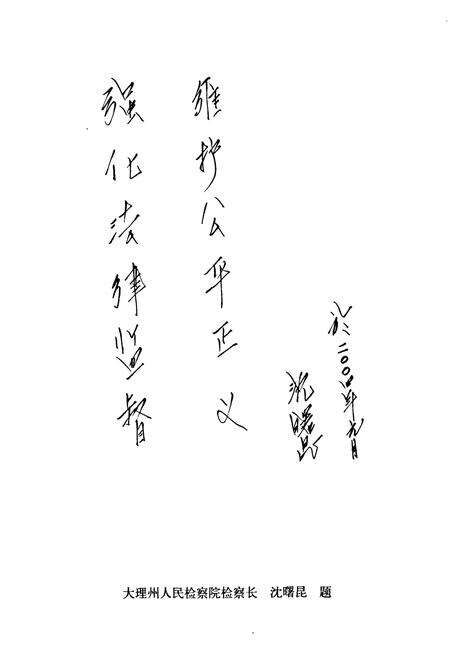 强化法律监督
维护公平正义
沈曙昆
於二00四年九月
大理州人民检察院检察长 沈曙昆 题